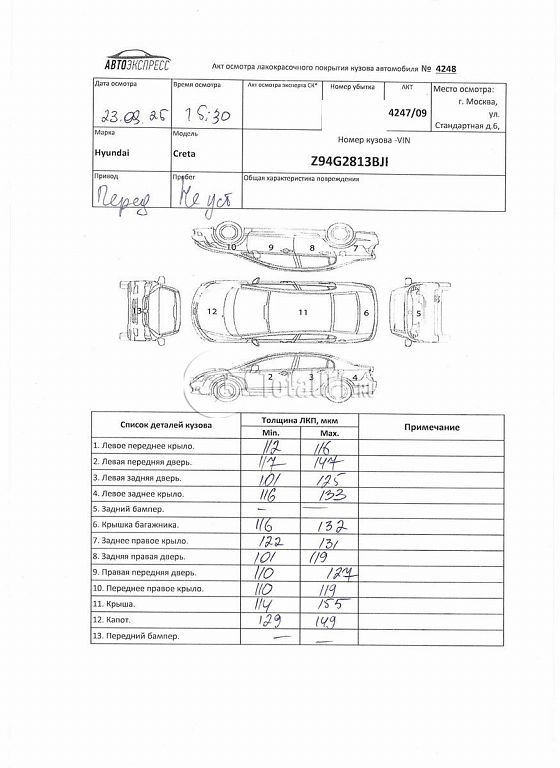 АВТОЭКСПРЕСС
Акт осмотра лакокрасочного покрытия кузова автомобиля № 4248
Дата осмотра Время осмотра Акт осмотра эксперта СК* Номер убытка ЛКТ Место осмотра:
23.03.25 15:30 4247/09 г. Москва,
ул.
Стандартная д.6,
Марка Модель Номер кузова -VIN
Hyundai Creta Z94G2813BJ
Привод Пробег Общая характеристика повреждения
Перед Не уст
10 9 8 7
13 12 11 6 5
2 3 4
Список деталей кузова Толщина ЛКП, мкм Примечание
Min. Max.
1. Левое переднее крыло. 112 116
2. Левая передняя дверь. 117 147
3. Левая задняя дверь. 101 125
4. Левое заднее крыло. 116 133
5. Задний бампер. – —
6. Крышка багажника. 116 132
7. Заднее правое крыло. 122 131
8. Задняя правая дверь. 101 119
9. Правая передняя дверь. 110 127
10. Переднее правое крыло. 110 119
11. Крыша. 114 155
12. Капот. 129 149
13. Передний бампер. — —